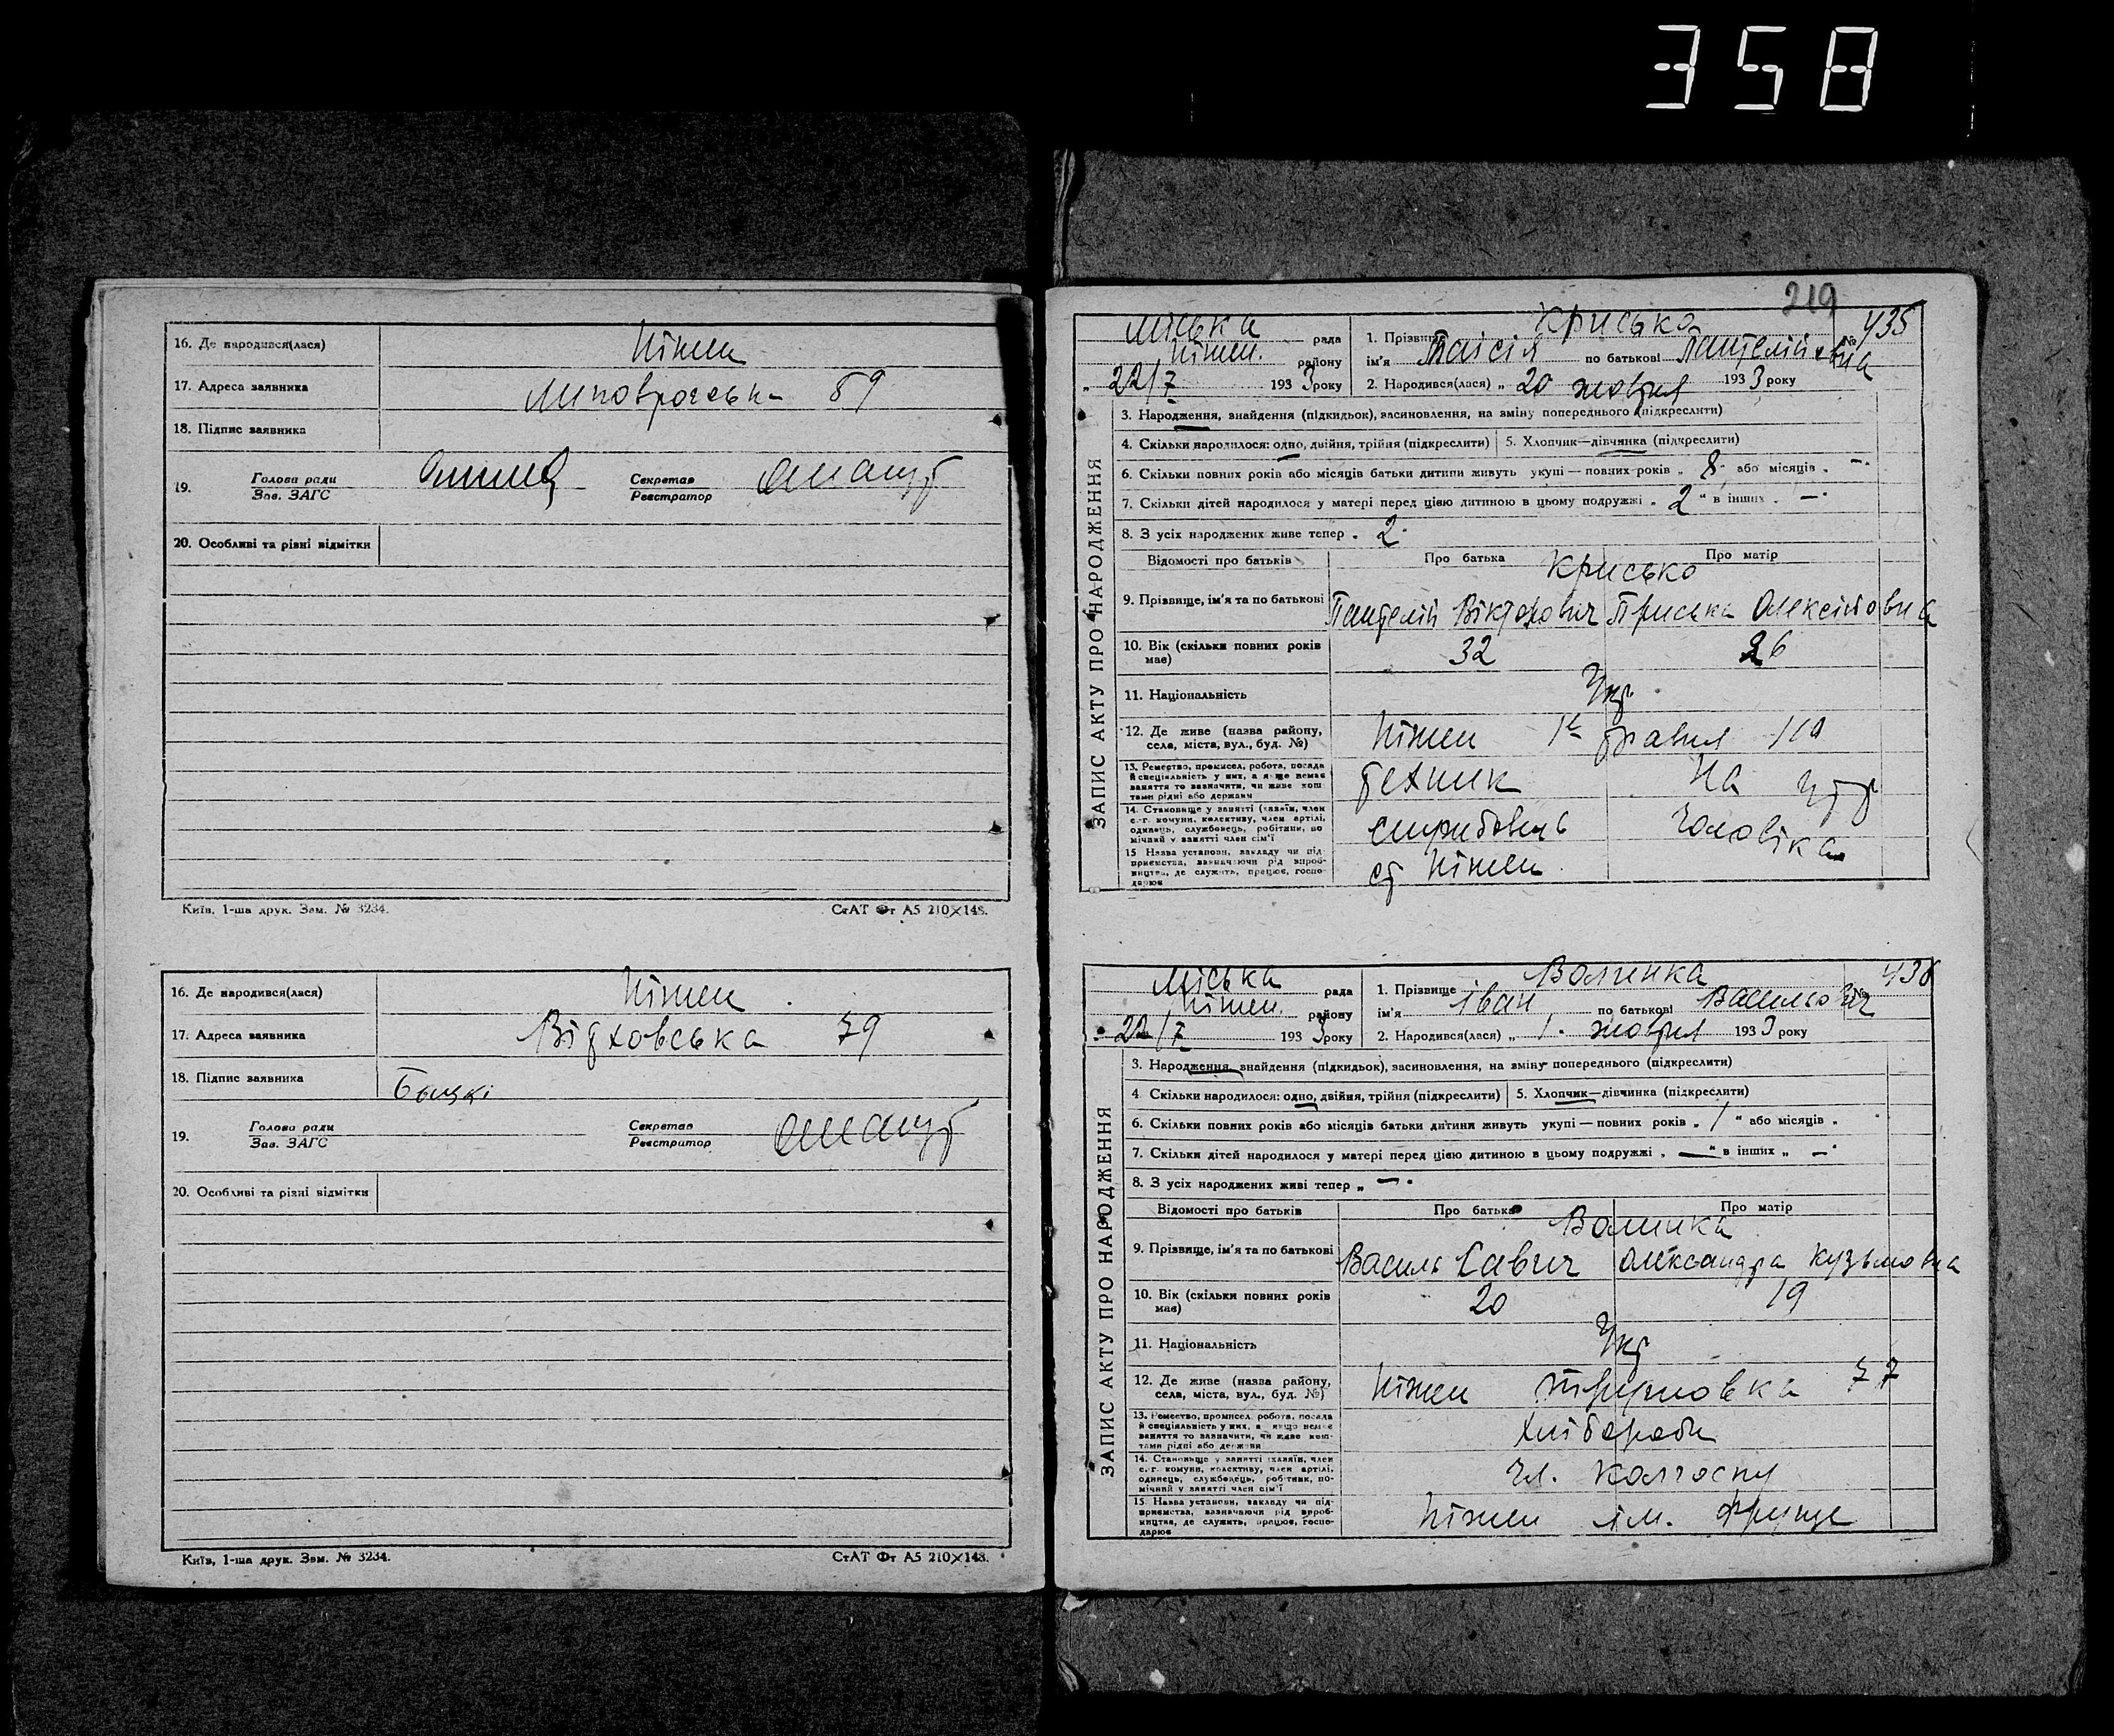 358
16. Де народився(лася) Ніжен
17. Адреса заявника 59
18. Підпис заявника
19. Голова ради
Зав. ЗАГС
Секретар
Реєстратор
20. Особливі та рівні відмітки
Київ, 1-ша друк. Зам. № 3234.
СтАТ Фт А5 210×148.
16. Де народився(лася) Ніжен
17. Адреса заявника 79
18. Підпис заявника
19. Голова ради
Зав. ЗАГС
Секретар
Реєстратор
20. Особливі та різні відмітки
Київ, 1-ша друк. Зам. № 3234.
СтАТ Фт А5 210×148.
219
ЗАПИС АКТУ ПРО НАРОДЖЕННЯ
Міська рада
Ніжен. району
„ 22/7 1933 року
1. Прізвище Крисько № 435
ім'я Таісія по батькові Пантелійовна
2. Народився(лася) „ 20 жовтня 1933 року
3. Народження, знайдення (підкидьок), засиновлення, на зміну попереднього (підкреслити)
4. Скільки народилося: одно, двійня, трійня (підкреслити) 5. Хлопчик—дівчинка (підкреслити)
6. Скільки повних років або місяців батьки дитини живуть укупі — повних років „ 8 " або місяців „ —"
7. Скільки дітей народилося у матері перед цією дитиною в цьому подружжі „ 2 " в інших „ —"
8. З усіх народжених живе тепер „ 2 "
Відомості про батьків Про батька Про матір
Крисько
9. Прізвище, ім'я та по батькові Пантелій Вікторович Приська Олексіївна
10. Вік (скільки повних років має) 32 26
11. Національність Укр.
12. Де живе (назва району, села, міста, вул., буд. №) Ніжен 1е травня 119
13. Ремество, промисел, робота, посада й спеціяльність у них, а якщо немає заняття то зазначити, чи живе коштами рідні або держави технік На утр
14. Становище у занятті (хазяїн, член с.-г. комуни, колективу, член артілі, одинець, службовець, робітник, помічний у занятті член сім'ї службовець чоловіка
15 Назва установи, закладу чи підприємства, зазначаючи рід виробництва, де служить, працює, господарює ст Ніжен
ЗАПИС АКТУ ПРО НАРОДЖЕННЯ
Міська рада
Ніжен. району
„ 22/7 1933 року
1. Прізвище Волинка № 436
ім'я Іван по батькові Васильович
2. Народився(лася) „ 1 " жовтня 1933 року
3. Народження, знайдення (підкидьок), засиновлення, на зміну попереднього (підкреслити)
4 Скільки народилося: одно, двійня, трійня (підкреслити) 5. Хлопчик—дівчинка (підкреслити)
6. Скільки повних років або місяців батьки дитини живуть укупі — повних років „ 1 " або місяців „ "
7. Скільки дітей народилося у матері перед цією дитиною в цьому подружжі „ — " в інших „ — "
8. З усіх народжених живі тепер „ — "
Відомості про батьків Про батька Про матір
Волинка
9. Прізвище, ім'я та по батькові Василь Савич Олександра Кузьмовна
10. Вік (скільки повних років має) 20 19
11. Національність Укр
12. Де живе (назва району, села, міста, вул., буд. №) Ніжен 77
13. Ремество, промисел, робота, посада й спеціяльність у них, а якщо немає заняття то зазначити, чи живе коштами рідні або держави хлібороби
14. Становище у занятті (хазяїн, член с.-г. комуни, колективу, член артілі, одинець, службовець, робітник, помічний у занятті член сім'ї чл. колгоспу
15 Назва установи, закладу чи підприємства, зазначаючи рід виробництва, де служить, працює, господарює Ніжен ім. Фрунзе